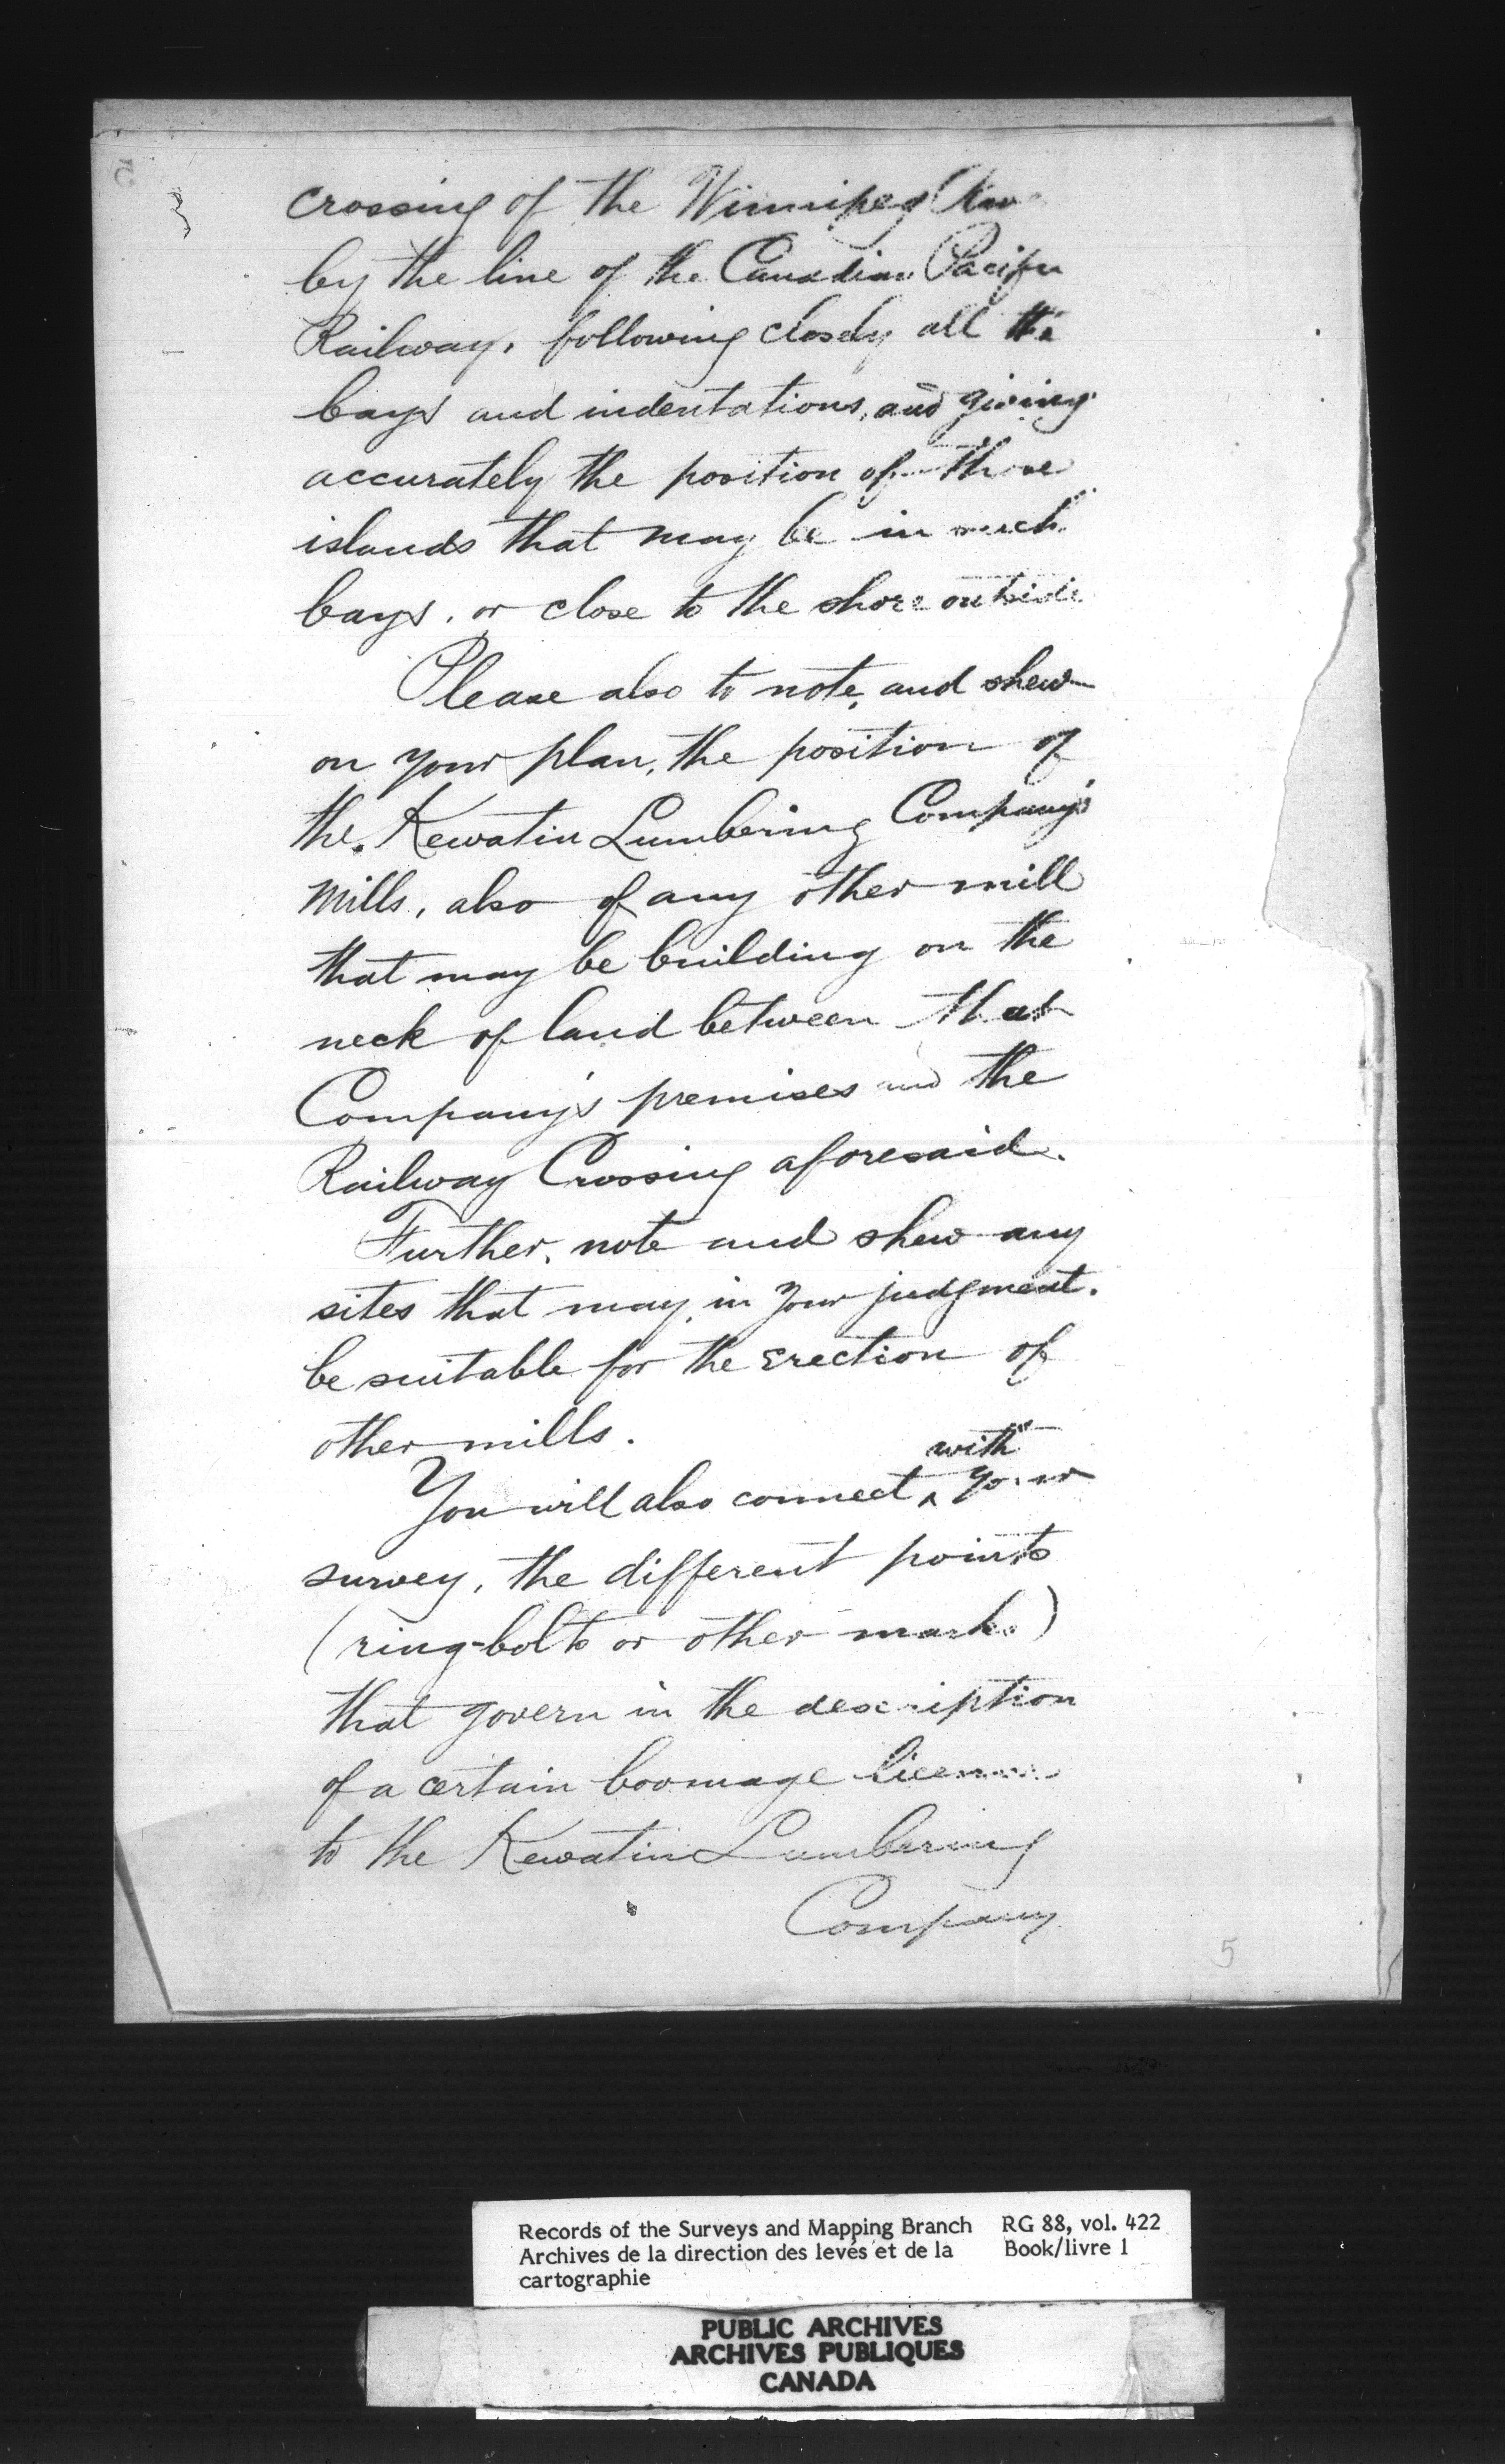 5
crossing of the Winnipeg
by the line of the Canadian Pacific
Railway, following closely all the
bays and indentations, and giving
accurately the position of those
islands that may be in such
bays, or close to the shore outside
Please also to note, and shew
on your plan, the position of
the Kewatin Lumbering Company's
Mills, also of any other mill
that may be building on the
neck of land between that
Company's premises and the
Railway Crossing aforesaid.
Further, note and shew any
sites that may, in your judgment,
be suitable for the erection of
other mills.
with
You will also connect ^ your
survey, the different points
(ring-bolts or other marks)
that govern in the description
of a certain boomage license
to the Kewatin Lumbering
Company
5
Records of the Surveys and Mapping Branch RG 88, vol. 422
Archives de la direction des levés et de la Book/livre 1
cartographie
PUBLIC ARCHIVES
ARCHIVES PUBLIQUES
CANADA